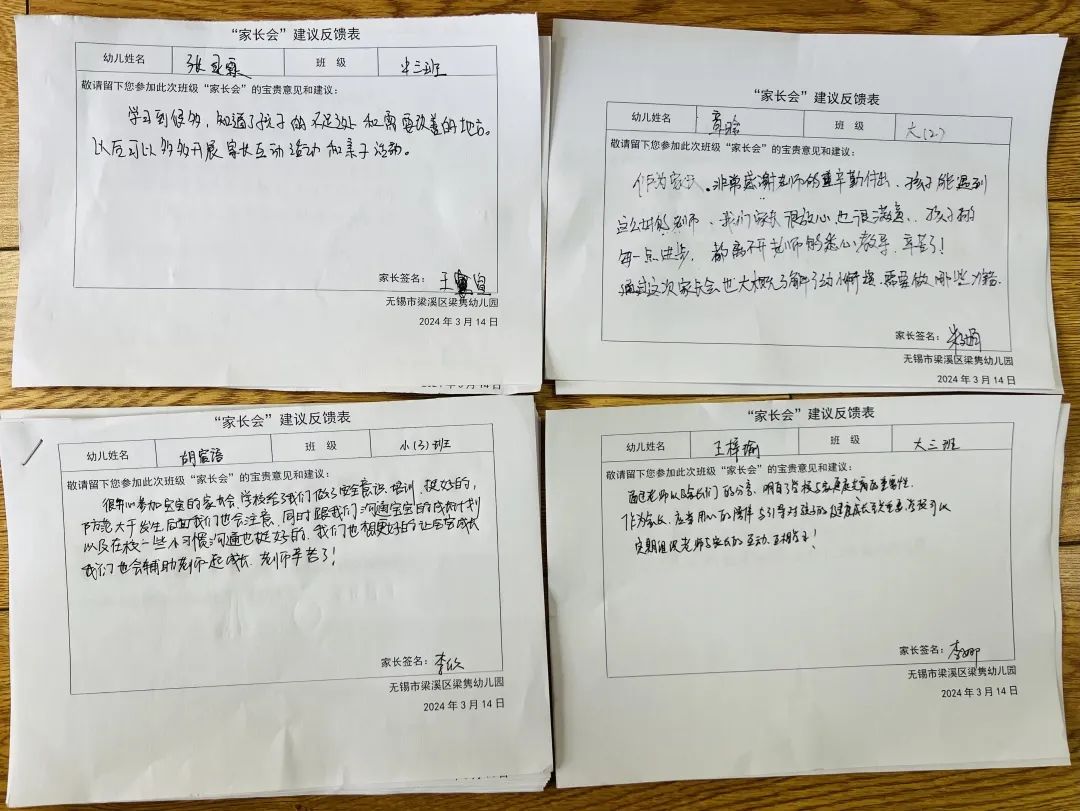 “家长会”建议反馈表
幼儿姓名 张 霖 班 级 小三班
敬请留下您参加此次班级“家长会”的宝贵意见和建议：
学习到很多，知道了孩子的不足之处和需要改善的地方。
以后可以多多开展家长互动活动和亲子活动。
家长签名：王
无锡市梁溪区梁隽幼儿园
2024年3月14日
2024年3月14日
“家长会”建议反馈表
幼儿姓名 班 级 大(2)
敬请留下您参加此次班级“家长会”的宝贵意见和建议：
作为家长，非常感谢老师的辛勤付出，孩子能遇到
这么好的老师、我们家长很放心也很满意、孩子的
每一点进步，都离不开老师的悉心教导，辛苦了！
通过这次家长会也大概了解了幼小衔接，需要做哪些准备.
家长签名：
无锡市梁溪区梁隽幼儿园
2024年3月14日
“家长会”建议反馈表
幼儿姓名 胡宸语 班 级 小(3)班
敬请留下您参加此次班级“家长会”的宝贵意见和建议：
很开心参加宝宝的家长会，学校给我们做了安全意识，培训，挺好的，
防范大于发生后面我们也会注意，同时跟我们沟通宝宝的成长计划
以及在校一些小习惯，沟通也挺好的，我们也想更好的让宝宝成长
我们也会辅助老师一起成长，老师辛苦了！
家长签名：李欣
无锡市梁溪区梁隽幼儿园
2024年3月14日
“家长会”建议反馈表
幼儿姓名 王梓瑜 班 级 大三班
敬请留下您参加此次班级“家长会”的宝贵意见和建议：
通过老师以及家长们的分享，明白了学校与家庭教育的重要性.
作为家长，应当用心的陪伴与引导对孩子的健康成长至关重要，学校可以
定期组织老师与家长的互动、互相学习！
家长签名：李娜
无锡市梁溪区梁隽幼儿园
2024年3月14日